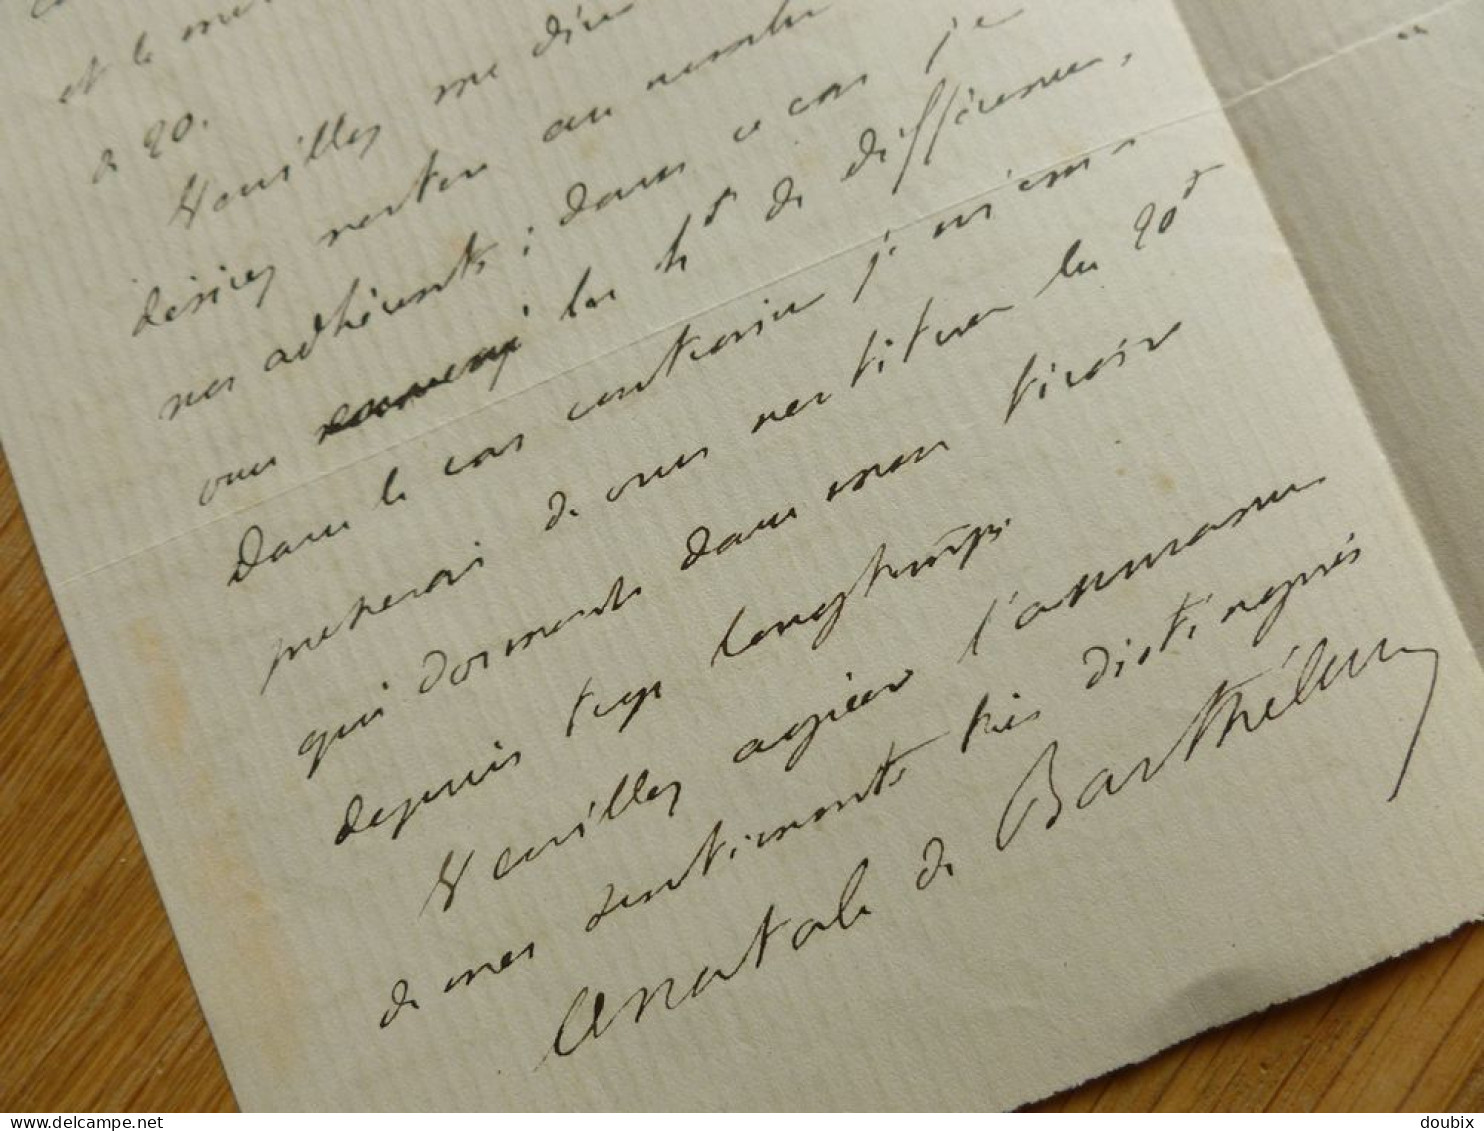 et le
à 20.
Veuillez me dire
désirez rester au nombre
nos adhérents ; dans ce cas je
vous les fs de différence,
Dans le cas contraire je m'em-
presserai de vous restituer les 20f
qui dorment dans mon tiroir
depuis trop longtemps.
Veuillez agréer l'assurance
de mes sentiments très distingués
Anatole de Barthélemy
doubix